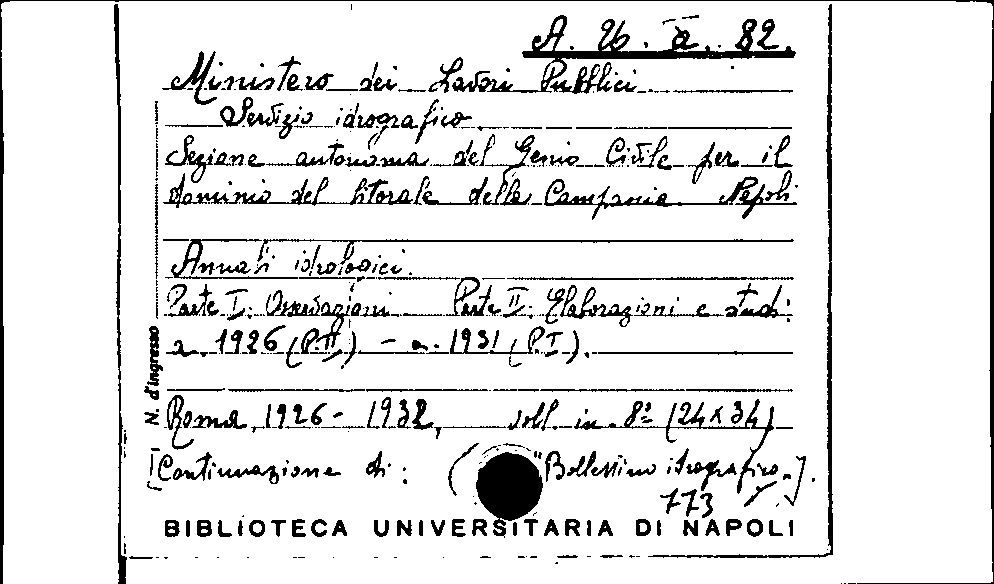 A. 26. a. 82.
Ministero dei Lavori Pubblici.
Servizio idrografico.
Sezione autonoma del Genio Civile per il
dominio del litorale della Campania. Napoli
Annali idrologici.
Parte I: Osservazioni. Parte II: Elaborazioni e studi:
a. 1926 (P. II) - a. 1931 (P. I).
N. d'ingresso
Roma, 1926 - 1932, voll. in - 8º (24 x 34)
[Continuazione di: ( "Bollettino idrografico„].
773
BIBLIOTECA UNIVERSITARIA DI NAPOLI